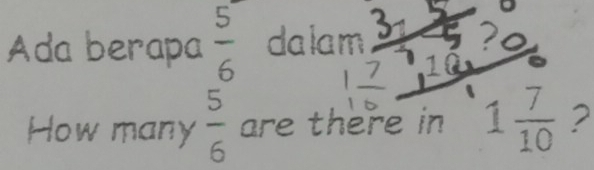 Ada berapa 5/6 dalam 1 7/10 ?
How many 5/6 are there in 1 7/10 ?